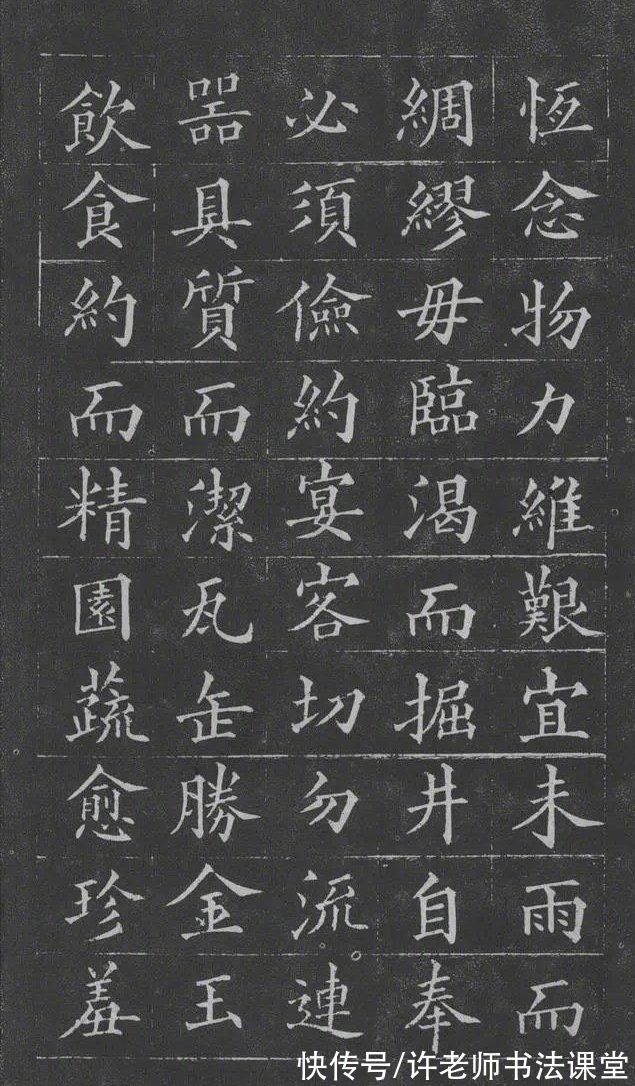 恆念物力維艱宜未雨而
綢繆毋臨渴而掘井自奉
必須儉約宴客切勿流連
器具質而潔瓦缶勝金玉
飲食約而精園蔬愈珍羞
快传号/许老师书法课堂